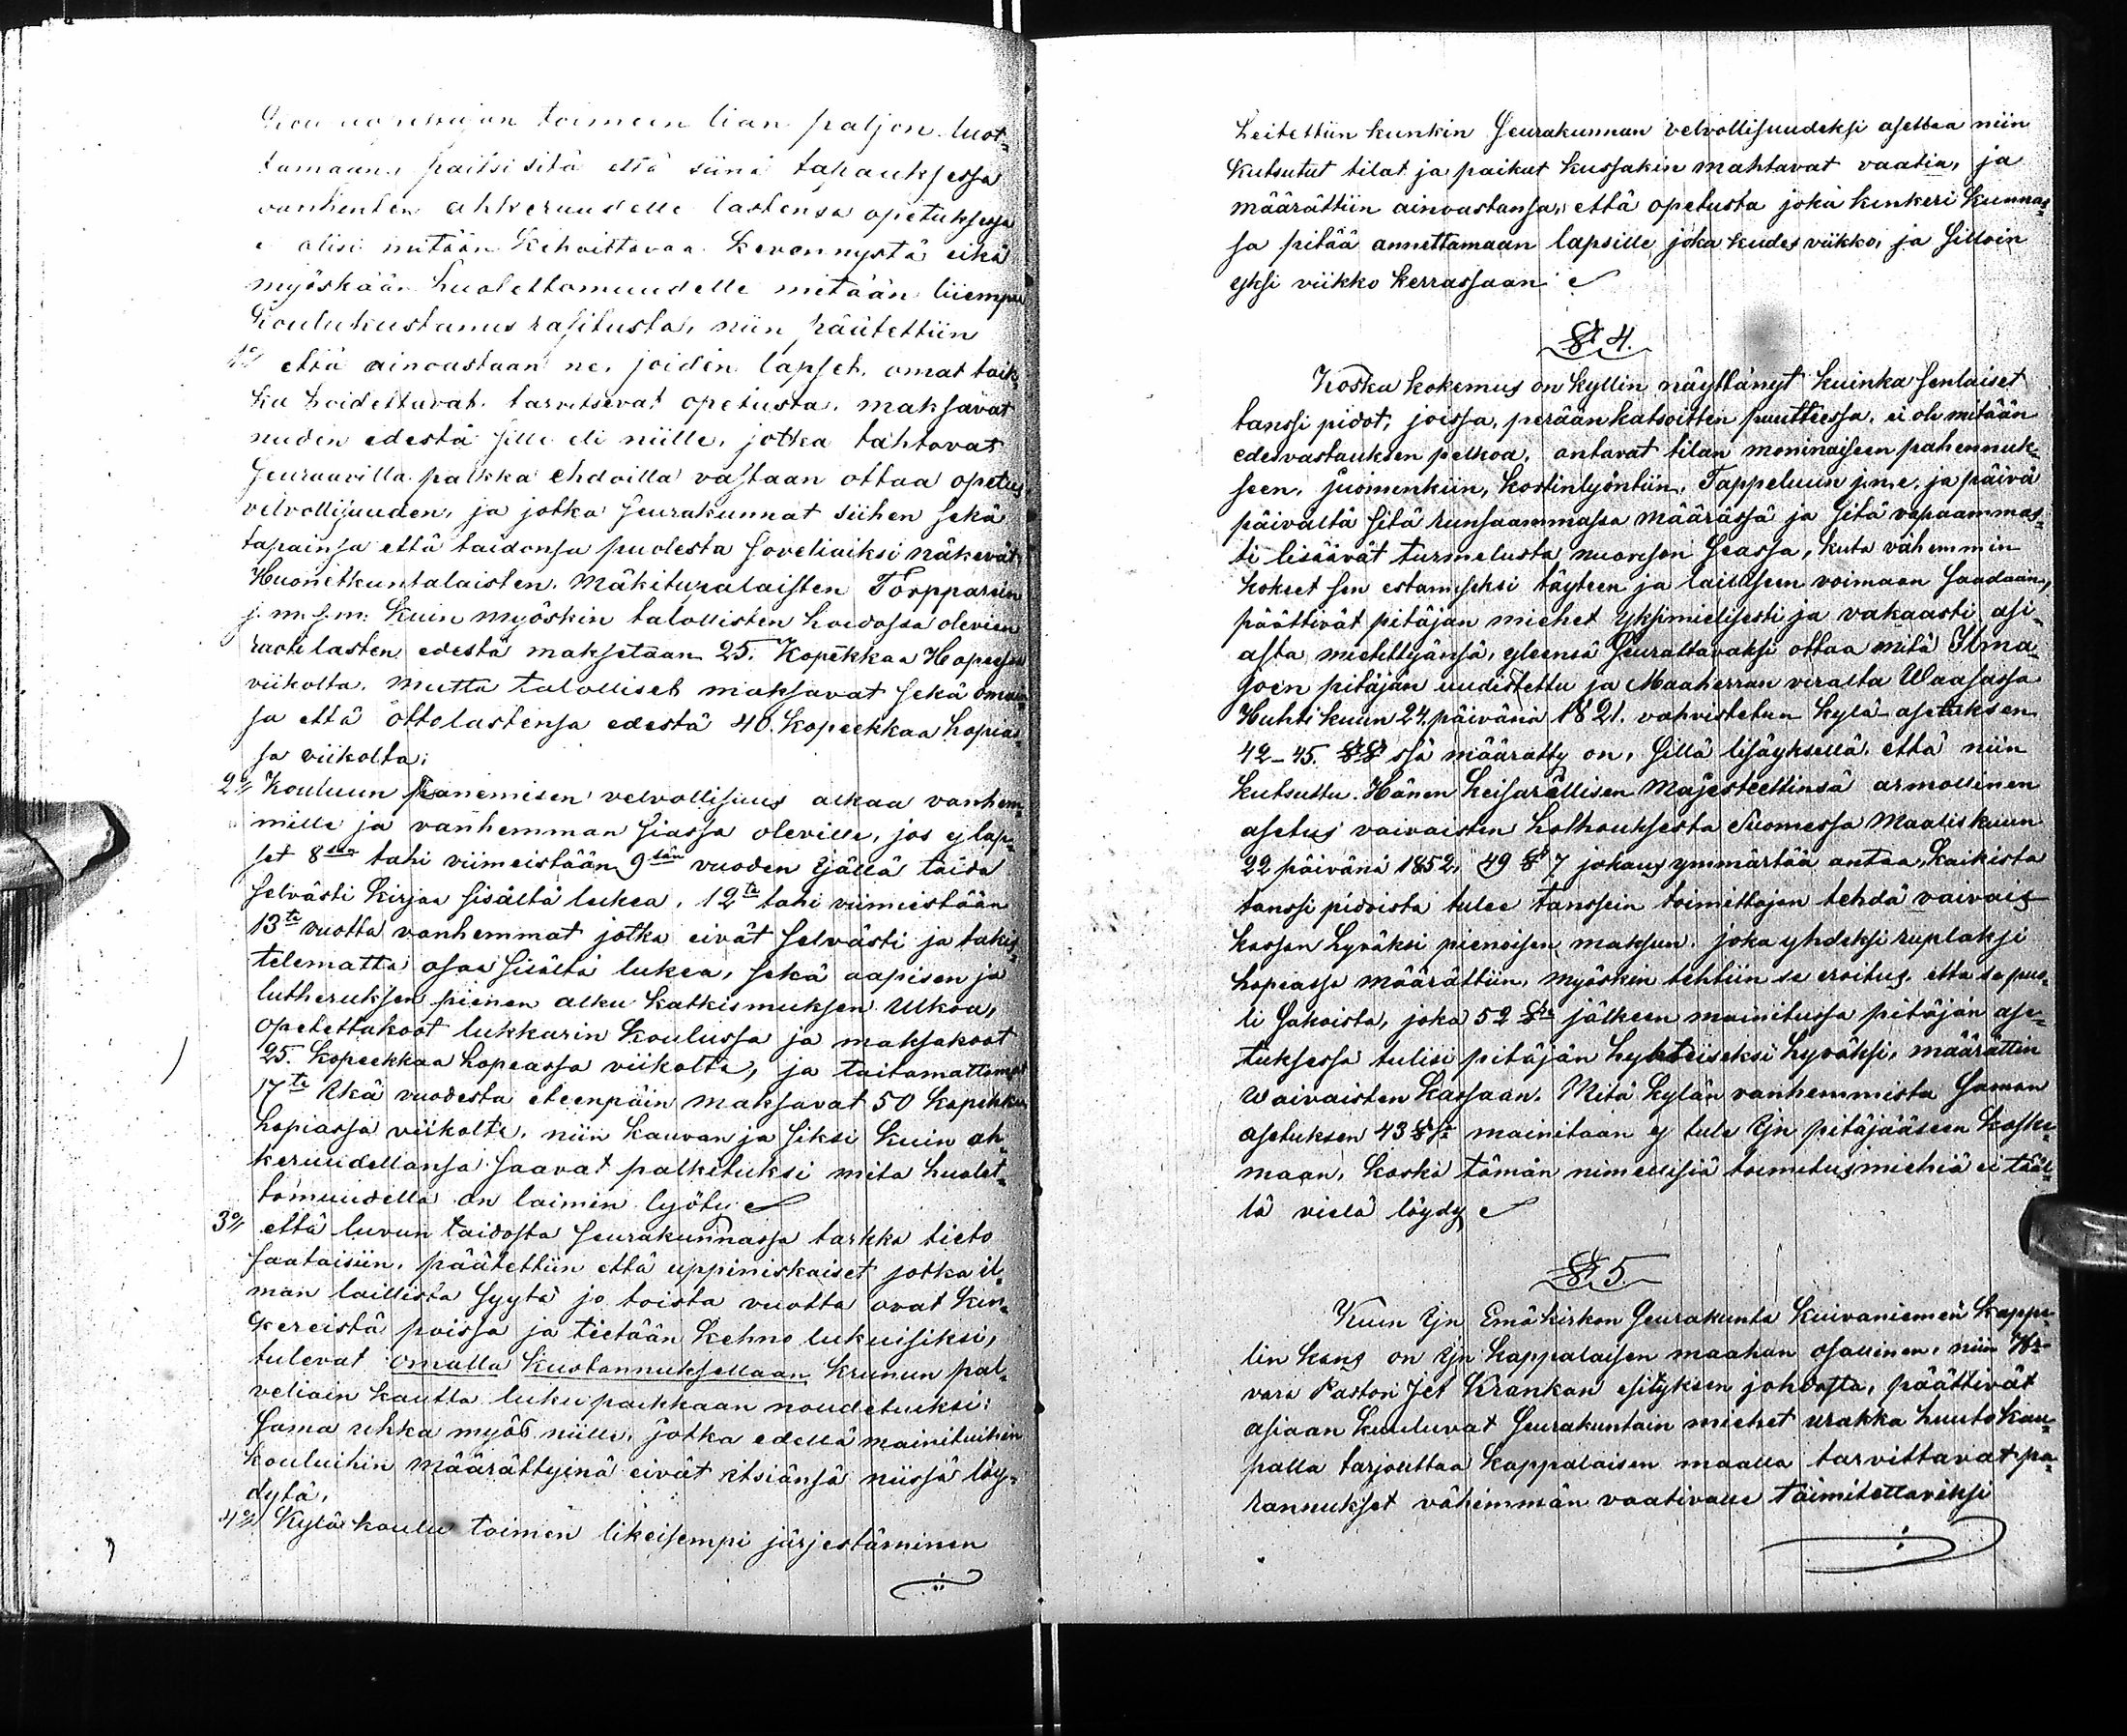 toimeen lian paljon luot¬
tamaan, paitsi sitä että siinä tapauksessa
vanhenten ahkeruudelle lastensa opetuksessa
e olisi mitään Kehoittavaa Kevennystä eikä
myöskään huolettomuudelle mitään liiempää
Koulukustanus rasitusta, niin päätettiin
1o/ että ainoastaan ne, joiden lapset, omat taik¬
ka hoidettavat tarvitsevat opetusta, maksavat
niiden edestä sille eli niille, jotka tahtovat
seuraavilla palkka ehdoilla vastaan ottaa opetus
velvollisuuden, ja jotka seurakunnat siihen sekä
tapainsa että taidonsa puolesta soveliaiksi näkevät
Huonetkuntalaisten, Mäkitupalaisten Torpparein
j. m. s. m. Kuin myöskin talollisten hoidossa olevien
ruotilasten edestä maksetaan 25. Kopekkaa Hopeassa
viikolta. Mutta talolliset maksavat sekä omain¬
sa että ottolastensa edestä 40. Kopeekkaa hopias¬
sa viikolta;
2o/ Kouluun panemisen velvollisuus alkaa vanhem¬
mille ja vanhemman siassa oleville, jos ej lap¬
set 8san tahi viimeistään 9sän vuoden Ijällä taida
selvästi Kirjaa sisältä lukea, 12ta tahi viimeistään
13ta vuotta vanhemmat jotka eivät selvästi ja takis¬
telematta osaa sisältä lukea, sekä aapisen ja
lutheruksen pienen alku Katkismuksen Ulkoa,
opetettakoot lukkarin Koulussa ja maksakoot
25. Kopeekkaa hopeassa viikolta, ja taitamattomat
17ta Ikä vuodesta eteenpäin maksavat 50 Kopekkaa
hopiassa viikolta, niin kauvan ja siksi Kuin ah¬
keruudellansa saavat palkituksi mitä huolet¬
tomuudella on laimin lyöty
3o/ että luvun taidosta seurakunnassa tarkka tieto
saataisiin, päätettiin että uppiniskaiset jotka il¬
man laillista syytä jo toista vuotta ovat Kin¬
kereistä poissa ja tietään Kehno lukuisiksi,
tulevat omalla Kustannuksellaan Krunun pal¬
veliain kautta luku paikkaan noudetuiksi:
sama uhka myös niille, jotka edellä mainituihin
Kouluihin määrättyinä eivät itsiänsä niissä löy¬
dytä,
4o/ Kylä koulu toimen likeisempi järjestäminen
heitettiin kunkin Seurakunnan velvollisuudeksi asettaa niin
Kutsutut tilat ja paikat kussakin mahtavat vaatia, ja
määrättiin ainoastansa, että opetusta joka kinkeri Kunnas¬
sa pitää annettamaan lapsille joka kudes viikko, ja silloin
yksi viikko kerrassaan
§ 4.
Koska kokemus on Kyllin näyttänyt kuinka senlaiset
tanssi pidot, joissa, perään katsoitten puutteessa, ei ole mitään
edesvastauksen pelkoa, antavat tilan moninaiseen pahennuk¬
seen, juominkiin, kortinlyöntiin, Tappeluun j.n.e. ja päivä
päivältä sitä runsaammassa määrässä ja sitä vapaammas¬
ti lisäävät turmelusta nuorison seassa, kuta vähemmin
kokeet sen estamiseksi täyteen ja lailliseen voimaan saadaan,
päättivät pitäjän miehet yksimielisesti ja vakaasti asi¬
asta mietittyänsä, yleensä seurattavaksi ottaa mitä Ilma¬
joen pitäjän uudistettu ja Maaherran viralta Waasassa
Huhti kuun 24. päivänä 1821. vahvistetun kylä asetuksen
42–45. §§ ssä määrätty on, sillä lisäyksellä, että niin
Kutsuttu Hänen Keisarillisen Majesteettinsä armollinen
asetus vaivaisten holhouksesta Suomessa Maaliskuun
22 päivänä 1852, 49 § 7 johaus ymmärtää antaa, kaikista
tanssi pidoista tulee tanssein toimittajan tehdä vaivais
kassan hyväksi pienoisen maksun, joka yhdeksi ruplaksi
hopeassa määrättiin, myöskin tehtiin se eroitus, että se puo¬
li sakoista, joka 52 §n jälkeen mainitussa pitäjän ase¬
tuksessa tulisi pitäjän hyhteiseksi hyväksi, määrättin
Waivaisten Kassaan. Mitä Kylän vanhemmista saman
asetuksen 43 §ssä mainitaan ej tule Ijn pitäjääseen koske¬
maan, koska tämän nimellisiä toimitusmiehiä ei tääl¬
lä vielä löydy
§ 5.
Kuin Ijn Emäkirkon Seurakunta Kuivaniemen Kappe¬
lin kans on Ijn kappalaisen maahan osallinen, niin Hr
vara Pastori Jet Krankan esityksen johdosta, päättivät
asiaan kuuluvat Seurakuntain miehet urakka huuto kau¬
palla tarjouttaa Kappalaisen maalla tarvittavat pa¬
rannukset vähimmän vaativalle toimitettaviksi